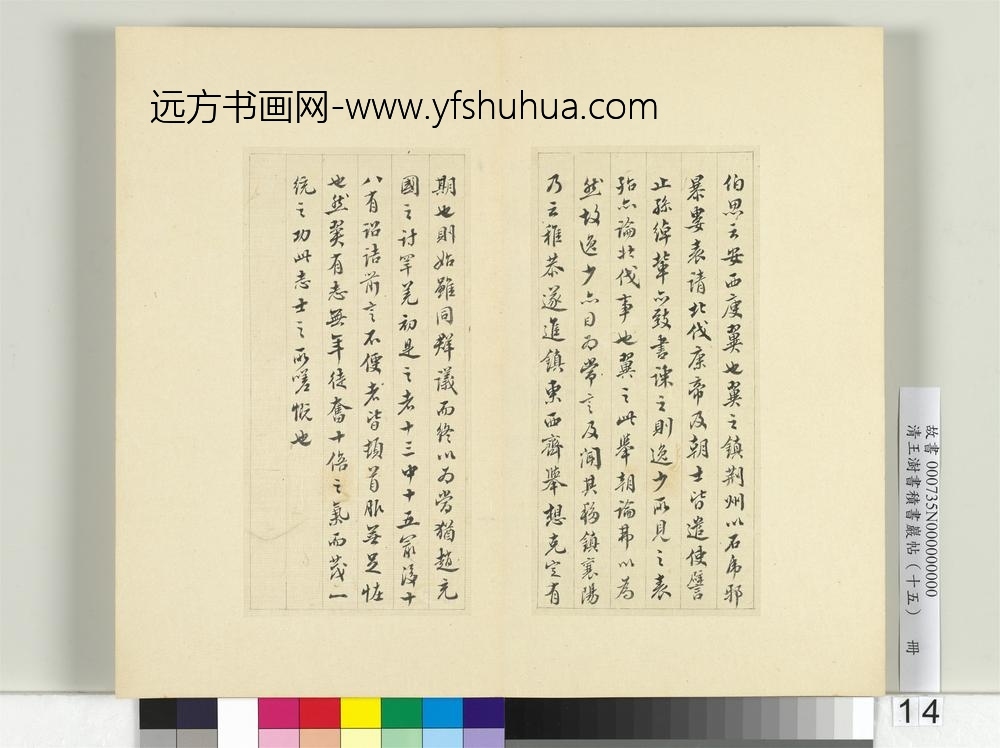 远方书画网-www.yfshuhua.com
伯思云安西庾翼也翼之鎮荆州以石虎邪
暴婁表請北伐康帝及朝士皆遣使譬
止孫綽輩亦致書諫之則逸少所見之表
殆亦論北伐事也翼之此舉朝論弗以為
然故逸少亦目為常言及聞其移鎮襄陽
乃云稚恭遂進鎮東西齊舉想克定有
期也則始雖同群議而終以為當猶趙充
國之討罕羌初是之者十三中十五最後十
八有詔詰前言不便者皆頓首服無足怪
也然翼有志無年徒奮十倍之氣而蔑一
統之功此志士之所嗟慨也
故書 000735N000000000
清王澍書積書巖帖(十五) 冊
14